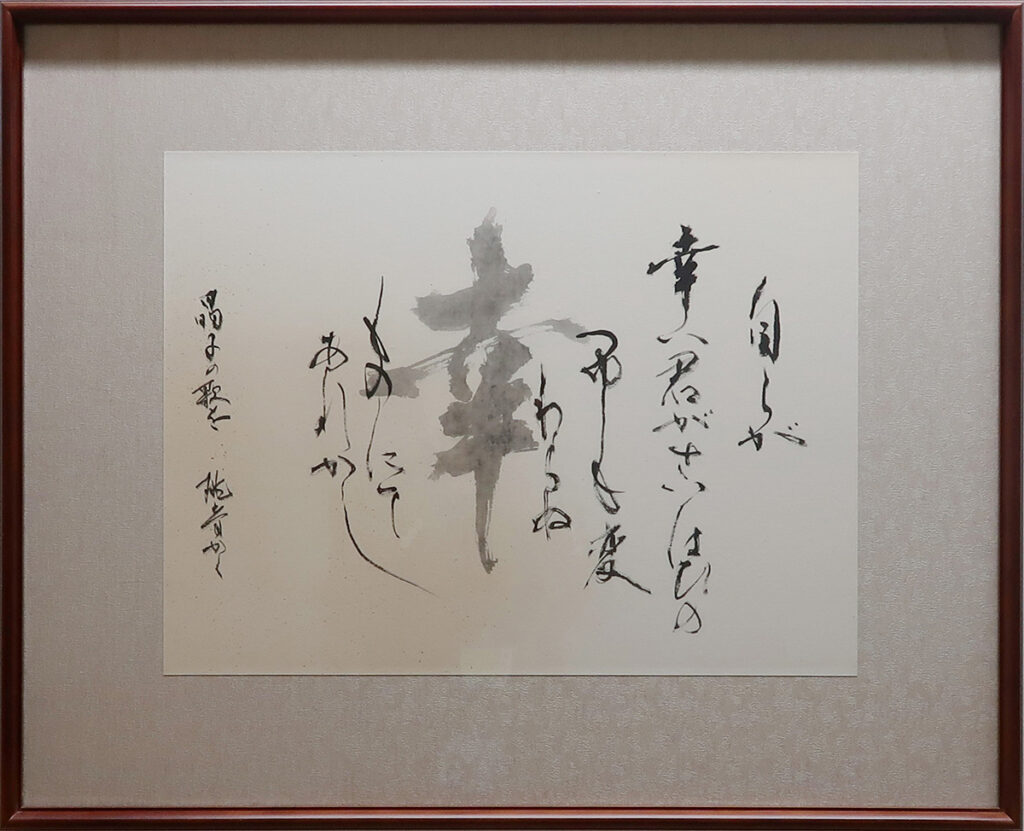 自らが
幸ハ君がさいはひの
つゆしも変
わらぬ
幸
ものにて
あれかし
晶子の歌を かく